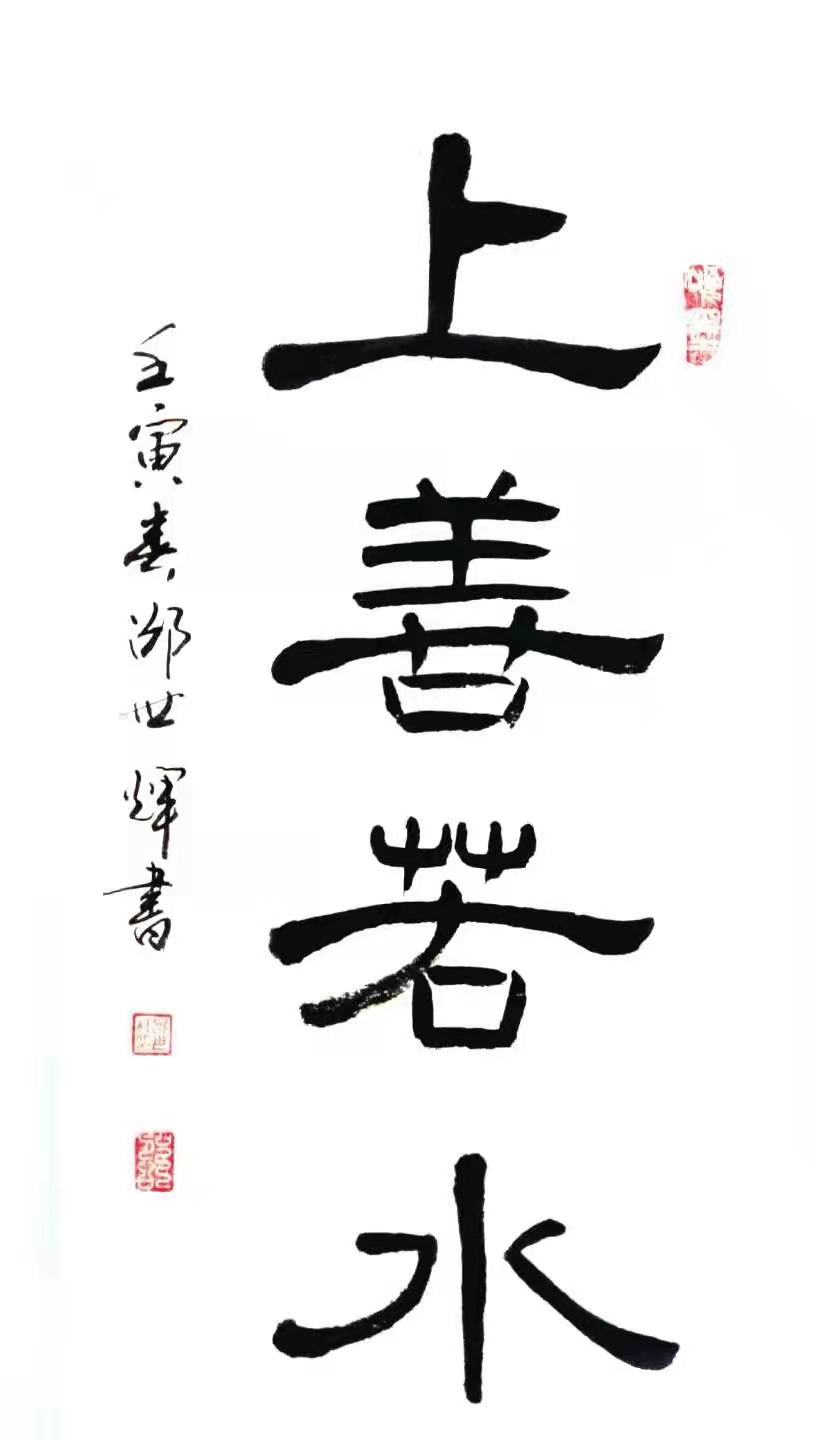 上善若水
壬寅春邵世輝書